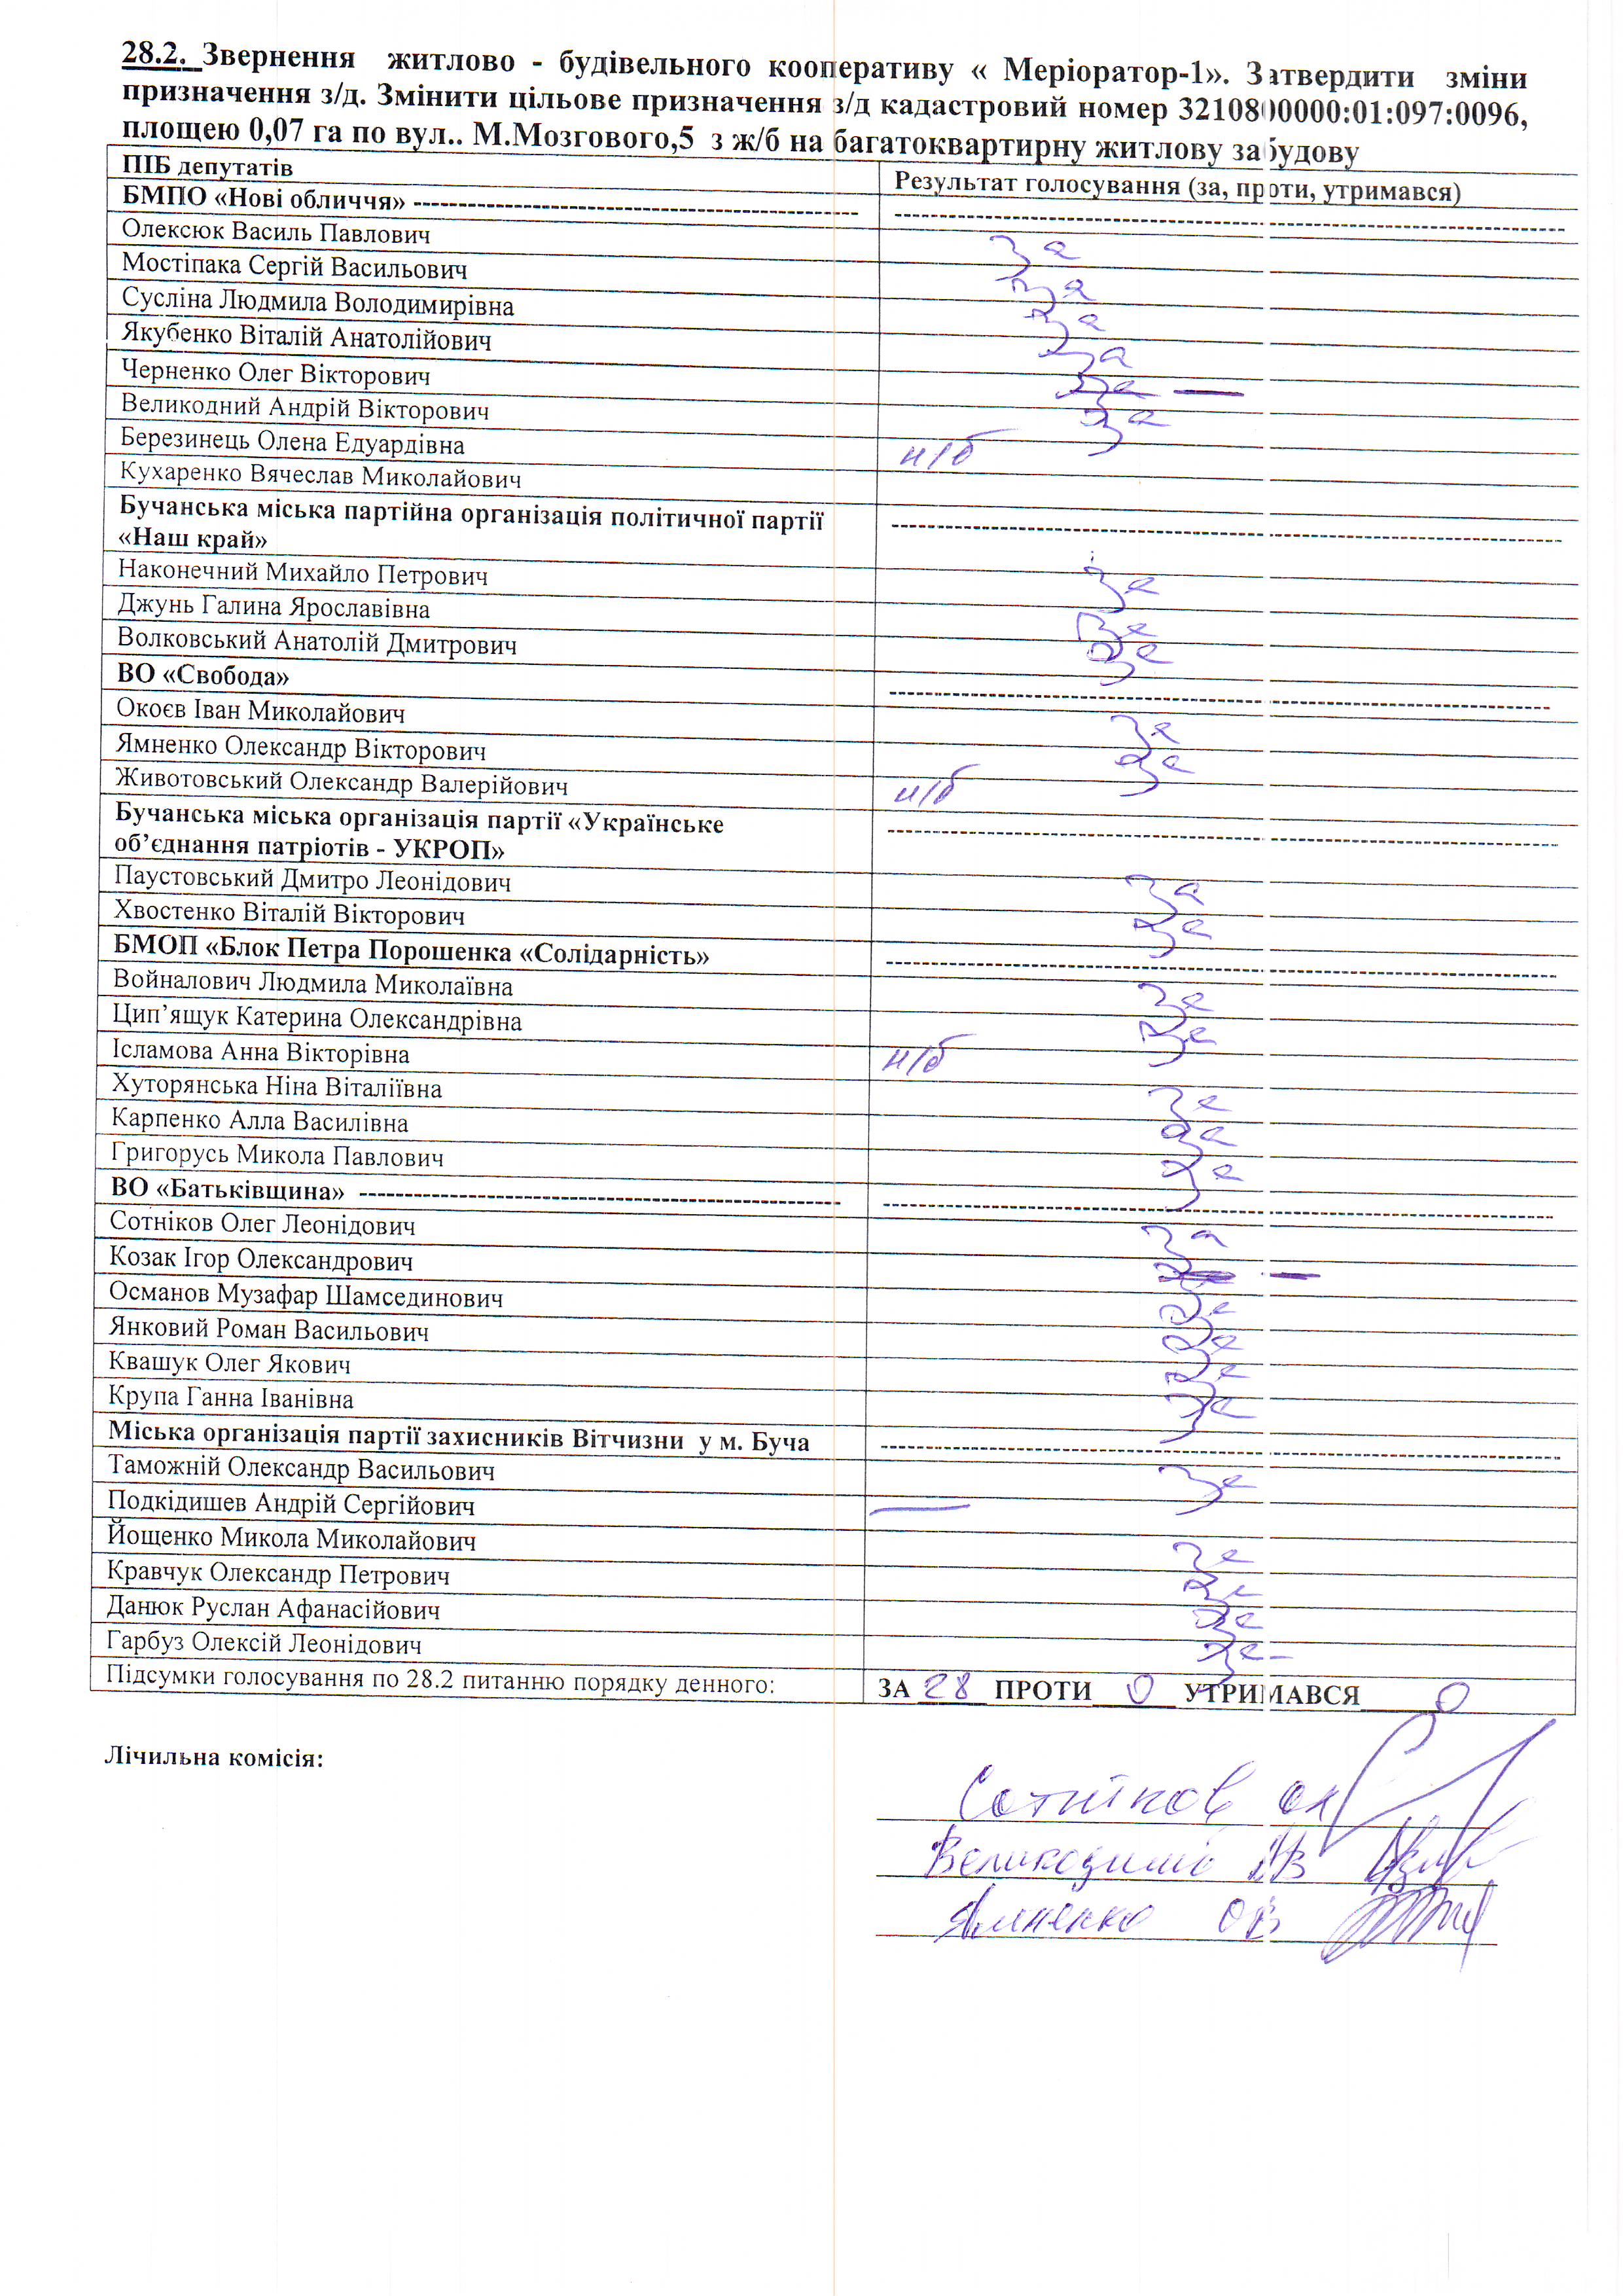 28.2. Звернення житлово - будівельного кооперативу « Меріоратор-1». Затвердити зміни
призначення з/д. Змінити цільове призначення з/д кадастровий номер 3210800000:01:097:0096,
площею 0,07 га по вул.. М.Мозгового,5 з ж/б на багатоквартирну житлову забудову
ПІБ депутатів Результат голосування (за, проти, утримався)
БМПО «Нові обличчя» ---------- ----------
Олексюк Василь Павлович за
Мостіпака Сергій Васильович за
Сусліна Людмила Володимирівна за
Якубенко Віталій Анатолійович за
Черненко Олег Вікторович за —
Великодний Андрій Вікторович за
Березинець Олена Едуардівна н/б
Кухаренко Вячеслав Миколайович
Бучанська міська партійна організація політичної партії ----------
«Наш край»
Наконечний Михайло Петрович за
Джунь Галина Ярославівна за
Волковський Анатолій Дмитрович за
ВО «Свобода» ----------
Окоєв Іван Миколайович за
Ямненко Олександр Вікторович за
Животовський Олександр Валерійович н/б
Бучанська міська організація партії «Українське ----------
об’єднання патріотів - УКРОП»
Паустовський Дмитро Леонідович за
Хвостенко Віталій Вікторович за
БМОП «Блок Петра Порошенка «Солідарність» ----------
Войналович Людмила Миколаївна за
Цип’ящук Катерина Олександрівна за
Ісламова Анна Вікторівна н/б
Хуторянська Ніна Віталіївна за
Карпенко Алла Василівна за
Григорусь Микола Павлович за
ВО «Батьківщина» ---------- ----------
Сотніков Олег Леонідович за
Козак Ігор Олександрович за —
Османов Музафар Шамсединович за
Янковий Роман Васильович за
Квашук Олег Якович за
Крупа Ганна Іванівна за
Міська організація партії захисників Вітчизни у м. Буча ----------
Таможній Олександр Васильович за
Подкідишев Андрій Сергійович —
Йощенко Микола Миколайович за
Кравчук Олександр Петрович за
Данюк Руслан Афанасійович за
Гарбуз Олексій Леонідович за
Підсумки голосування по 28.2 питанню порядку денного: ЗА 28 ПРОТИ 0 УТРИМАВСЯ 0
Лічильна комісія:
Сотніков ОЛ
Великодний АВ
Ямненко ОВ